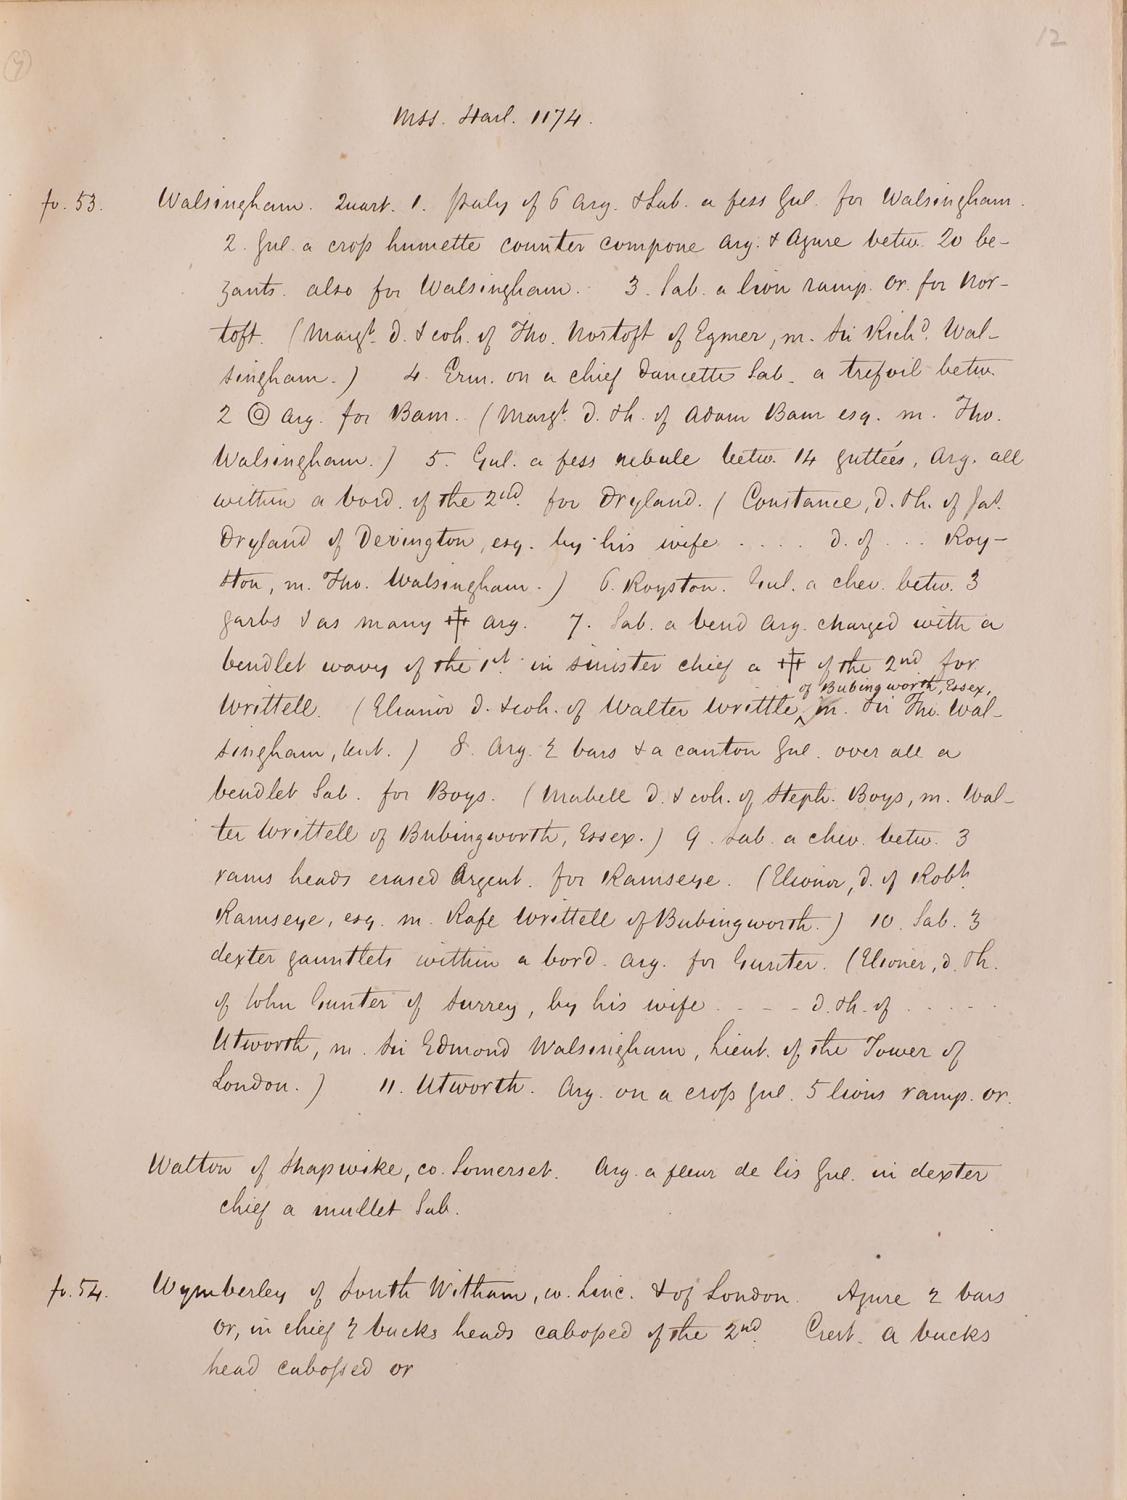 12
7
Mss. Harl. 1174.
fo. 53. Walsingham. Quart. 1. Paly of 6 Arg. & Sab. a fess Gul. for Walsingham.
2. Gul. a cross humette counter compone Arg. & Azure betw. 20 be-
zants. also for Walsingham. 3. Sab. a lion ramp. or. for Nor-
toft. (Margt. d. & coh. of Tho. Nortoft of Egmer, m. Sir Richd. Wal-
singham.) 4. Erm. on a chief dancette Sab. a trefoil betw.
2 ◎ Arg. for Bam. (Margt. d. & h. of Adam Bam esq. m. Tho.
Walsingham.) 5. Gul. a fess nebule betw. 14 guttées, Arg. all
within a bord. of the 2nd. for Dryland. (Constance, d. & h. of Jas.
Dryland of Devington, esq. by his wife . . . . d. of . . . Roy-
ston, m. Tho. Walsingham.) 6. Royston. Gul. a chev. betw. 3
garbs & as many ⸸ Arg. 7. Sab. a bend Arg. charged with a
bendlet wavy of the 1st. in sinister chief a ⸸ of the 2nd for
of Bubingworth, Essex,
Writtell. (Elianor d. & coh. of Walter Writtle, ‸ m. Sir Tho. Wal-
singham, knt.) 8. Arg. 2 bars & a canton Gul. over all a
bendlet Sab. for Boys. (Mabell d. & coh. of Steph. Boys, m. Wal-
ter Writtell of Bubingworth, Essex.) 9. Sab. a chev. betw. 3
rams heads erased Argent. for Ramseye. (Elionor, d. of Robt.
Ramseye, esq. m. Rafe Writtell of Bubingworth.) 10. Sab. 3
dexter gauntlets within a bord. Arg. for Gunter. (Elioner, d. & h.
of John Gunter of Surrey, by his wife . - - - d. & h. of . . . .
Utworth, m. Sir Edmond Walsingham, Lieut. of the Tower of
London.) 11. Utworth. Arg. on a cross Gul. 5 lions ramp. or.
Walton of Shapwike, co. Somerset. Arg. a fleur de lis Gul. in dexter
chief a mullet Sab.
fo. 54. Wymberley of South Witham, co. Linc. & of London. Azure 2 bars
or, in chief 2 bucks heads cabossed of the 2nd. Crest. a bucks
head cabossed or